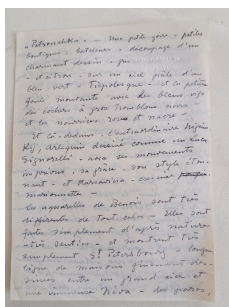 "Petrouchka. — Une petite foire - petites
boutiques - bateleurs - découpage d'un
charmant dessin -
et citron - sur un ciel pâle d'un
bleu vert - Tiepolesque - et en petite
foule mouvante avec des bleus vifs
de cochers à gros Troublons noirs
et en nourrices roses et nacre -
Et là-dedans, l'extraordinaire Nijins
Kij, Arlequin dessiné comme un
Signorelli - avec ses mouvements
imprévus, sa grâce, son style éton-
nant - et Karsavina - exquise
marionnette -
Les aquarelles de Benois sont très
différentes de tout cela - Elles sont
faites simplement d'après nature
- très senties - et montrent très
simplement St Petersbourg - longue
ligne de maisons finement des-
sinées entre un grand ciel et
une immense Néva - des parcs